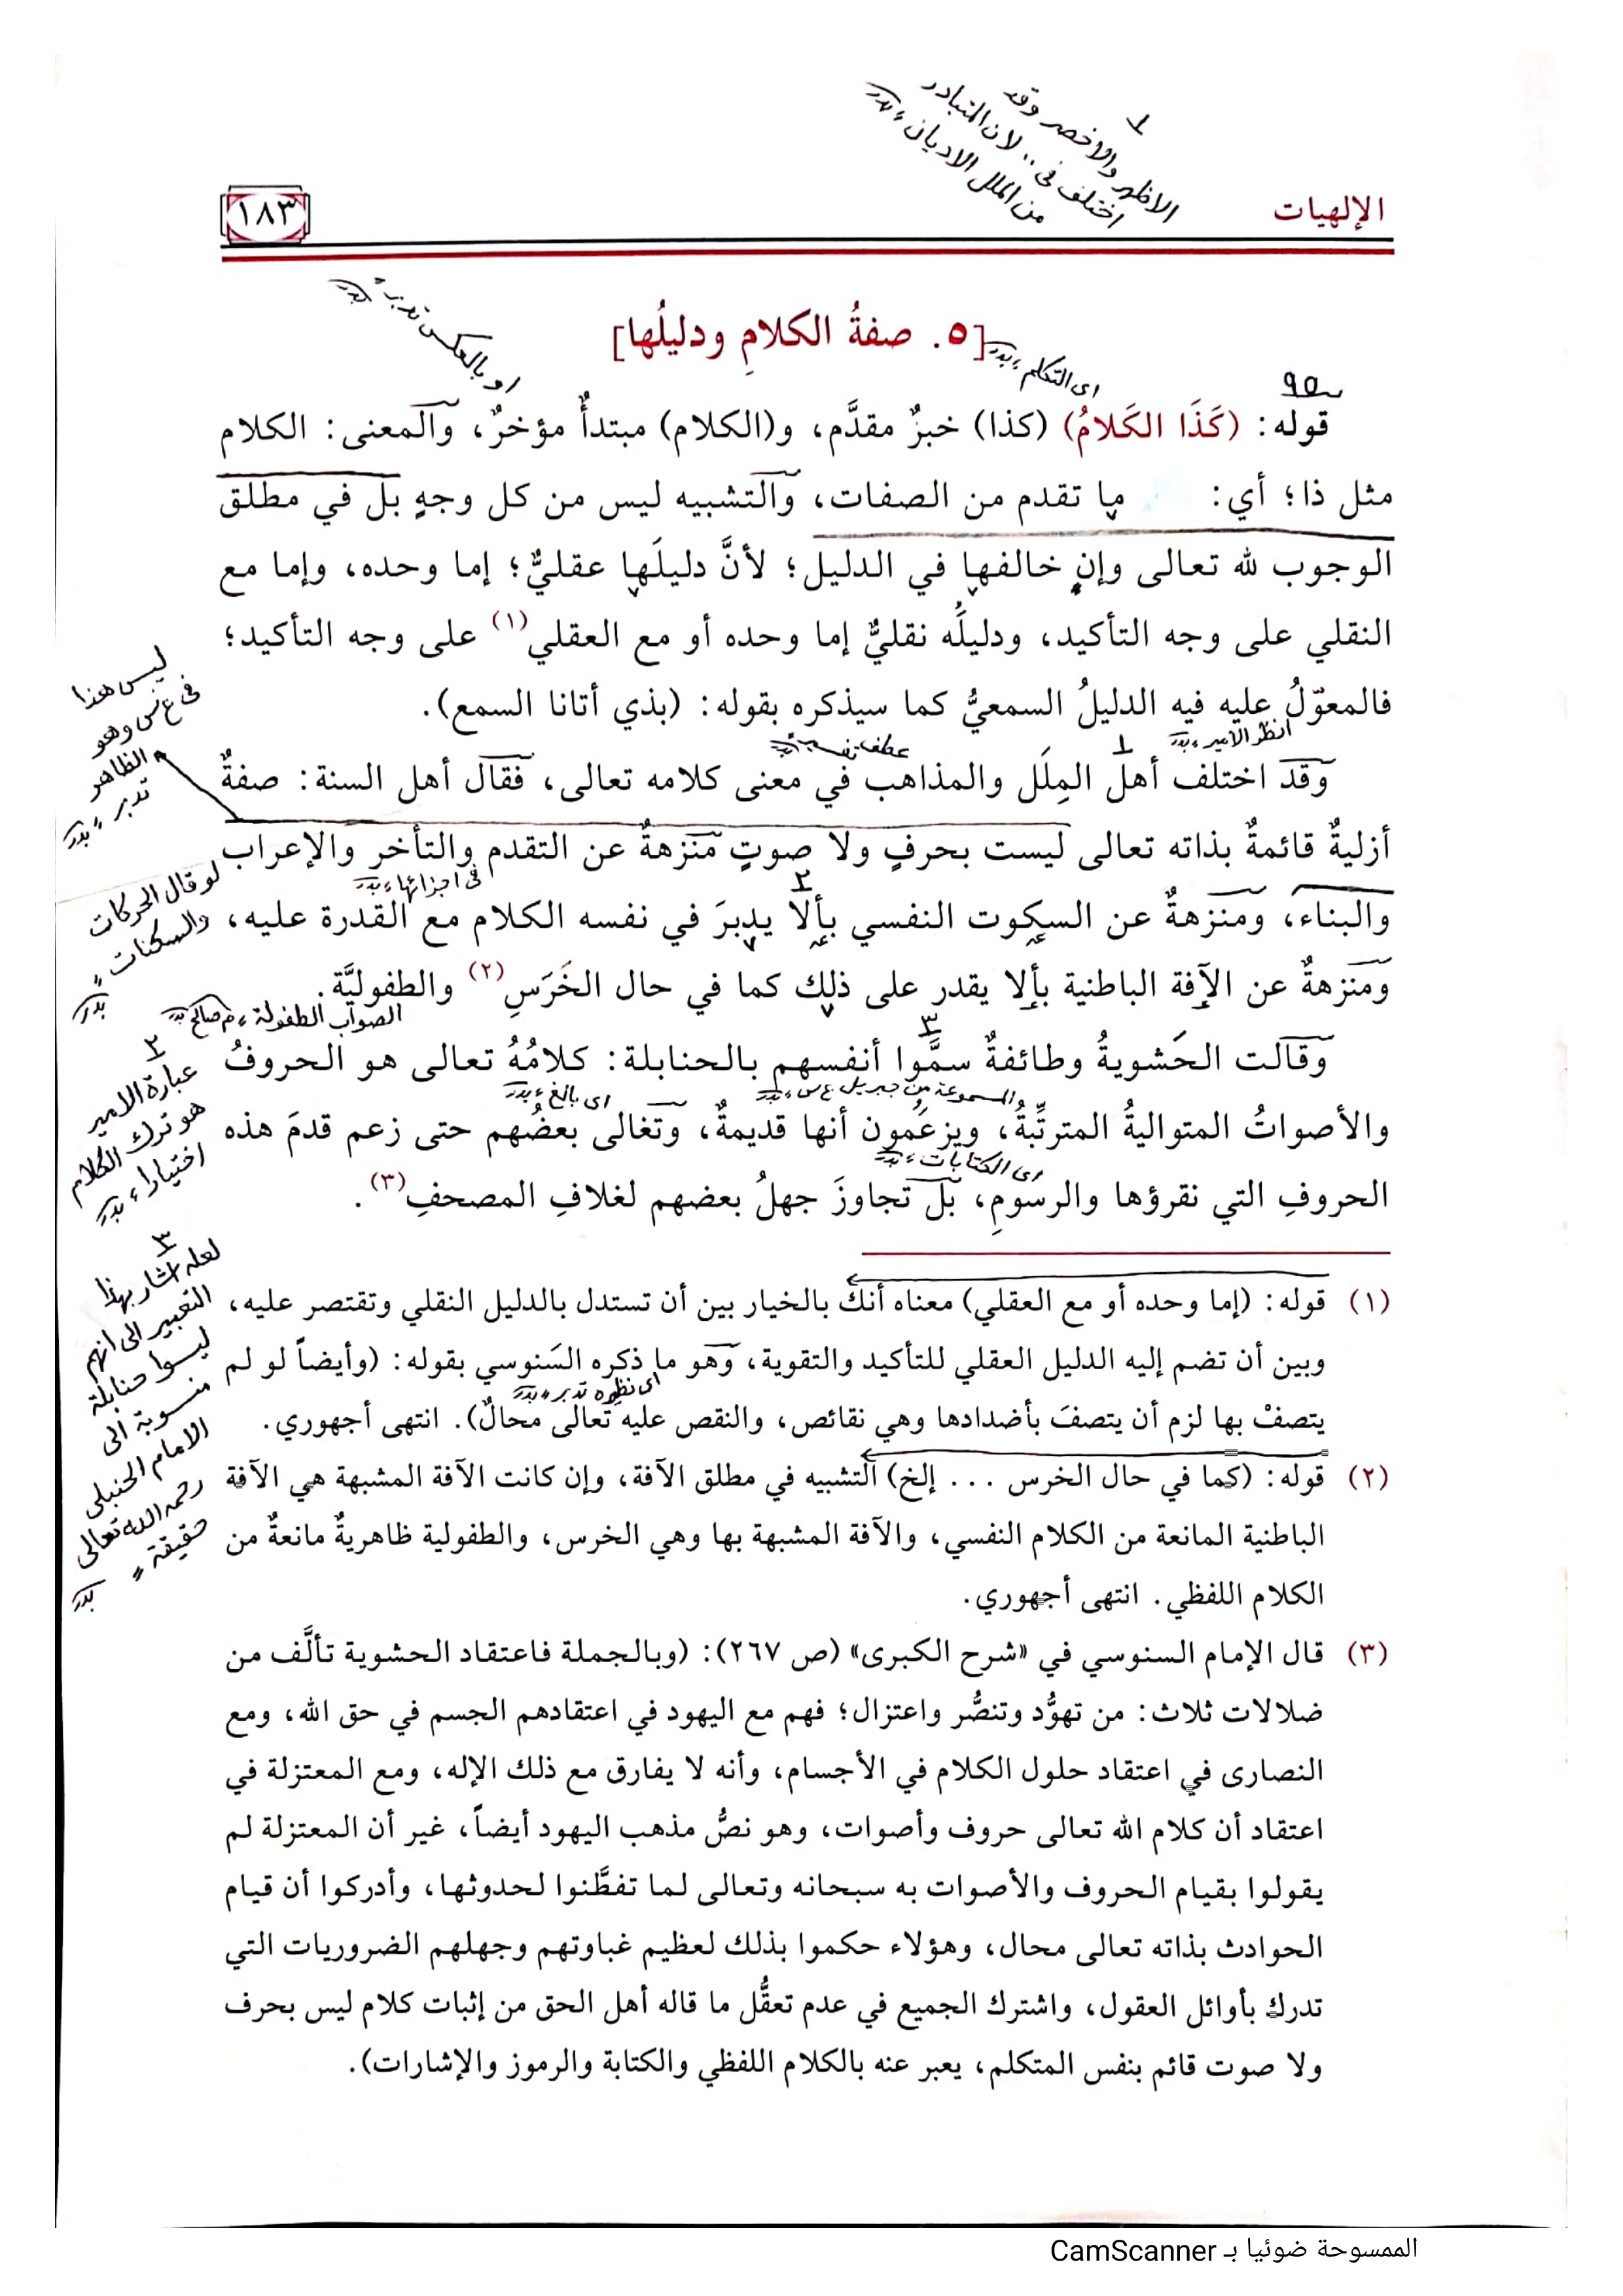 الاظهر والاخصر وقد
اختلف في .. لان المتبادر
من الملل الاديان ، بدر
الإلهيات
١٨٣
او بالعكس تدبر ، بدر
[٥. صفةُ الكلامِ ودليلُها]
اى التكلم ، بدر
قوله: (كَذَا الكَلامُ) (كذا) خبرٌ مقدَّم، و(الكلام) مبتدأٌ مؤخرٌ، والمعنى: الكلام
مثل ذا؛ أي: ما تقدم من الصفات، والتشبيه ليس من كل وجهٍ بل في مطلق
الوجوب لله تعالى وإن خالفها في الدليل؛ لأنَّ دليلَها عقليٌّ؛ إما وحده، وإما مع
النقلي على وجه التأكيد، ودليلُه نقليٌّ إما وحده أو مع العقلي(١) على وجه التأكيد؛
فالمعوّلُ عليه فيه الدليلُ السمعيُّ كما سيذكره بقوله: (بذي أتانا السمع).
انظر الامير ، بدر
عطف
وقد اختلف أهل المِلَل والمذاهب في معنى كلامه تعالى، فقال أهل السنة: صفةٌ
أزليةٌ قائمةٌ بذاته تعالى ليست بحرفٍ ولا صوتٍ منزهةٌ عن التقدم والتأخر والإعراب
فى اجزائها ، بدر
والبناء، ومنزهةٌ عن السكوت النفسي بألا يدبرَ في نفسه الكلام مع القدرة عليه،
ومنزهةٌ عن الآفة الباطنية بألا يقدر على ذلك كما في حال الخَرَسِ(٢) والطفوليَّة.
الصواب الطفولة ، م صالح بدر
وقالت الحَشويةُ وطائفةٌ سمَّوا أنفسهم بالحنابلة: كلامُهُ تعالى هو الحروفُ
المسموعة من جبريل ع س ، بدر
اى بالغ ، بدر
والأصواتُ المتواليةُ المترتِّبةُ، ويزعمون أنها قديمةٌ، وتغالى بعضُهم حتى زعم قدمَ هذه
اى الكتابات ، بدر
الحروفِ التي نقرؤها والرسومِ، بل تجاوزَ جهلُ بعضهم لغلافِ المصحفِ(٣).
ليس هذا
فى ع س وهو
الظاهر
تدبر ، بدر
لو قال الحركات
والسكنات ،
بدر
٢
عبارة الامير
هو ترك الكلام
اختيارا ، بدر
٣
لعله اشار بهذا
التعبير الى انهم
ليسوا حنابلة
منسوبة الى
الامام الحنبلى
رحمه الله تعالى
حقيقة ،
بدر
(١) قوله: (إما وحده أو مع العقلي) معناه أنك بالخيار بين أن تستدل بالدليل النقلي وتقتصر عليه،
وبين أن تضم إليه الدليل العقلي للتأكيد والتقوية، وهو ما ذكره السَنوسي بقوله: (وأيضاً لو لم
اى نظره تدبر ، بدر
يتصفْ بها لزم أن يتصفَ بأضدادها وهي نقائص، والنقص عليه تعالى محالٌ). انتهى أجهوري.
(٢) قوله: (كما في حال الخرس ... إلخ) التشبيه في مطلق الآفة، وإن كانت الآفة المشبهة هي الآفة
الباطنية المانعة من الكلام النفسي، والآفة المشبهة بها وهي الخرس، والطفولية ظاهريةٌ مانعةٌ من
الكلام اللفظي. انتهى أجهوري.
(٣) قال الإمام السنوسي في «شرح الكبرى» (ص ٢٦٧): (وبالجملة فاعتقاد الحشوية تألَّف من
ضلالات ثلاث: من تهوُّد وتنصُّر واعتزال؛ فهم مع اليهود في اعتقادهم الجسم في حق الله، ومع
النصارى في اعتقاد حلول الكلام في الأجسام، وأنه لا يفارق مع ذلك الإله، ومع المعتزلة في
اعتقاد أن كلام الله تعالى حروف وأصوات، وهو نصُّ مذهب اليهود أيضاً، غير أن المعتزلة لم
يقولوا بقيام الحروف والأصوات به سبحانه وتعالى لما تفطَّنوا لحدوثها، وأدركوا أن قيام
الحوادث بذاته تعالى محال، وهؤلاء حكموا بذلك لعظيم غباوتهم وجهلهم الضروريات التي
تدرك بأوائل العقول، واشترك الجميع في عدم تعقُّل ما قاله أهل الحق من إثبات كلام ليس بحرف
ولا صوت قائم بنفس المتكلم، يعبر عنه بالكلام اللفظي والكتابة والرموز والإشارات).
الممسوحة ضوئيا بـ CamScanner